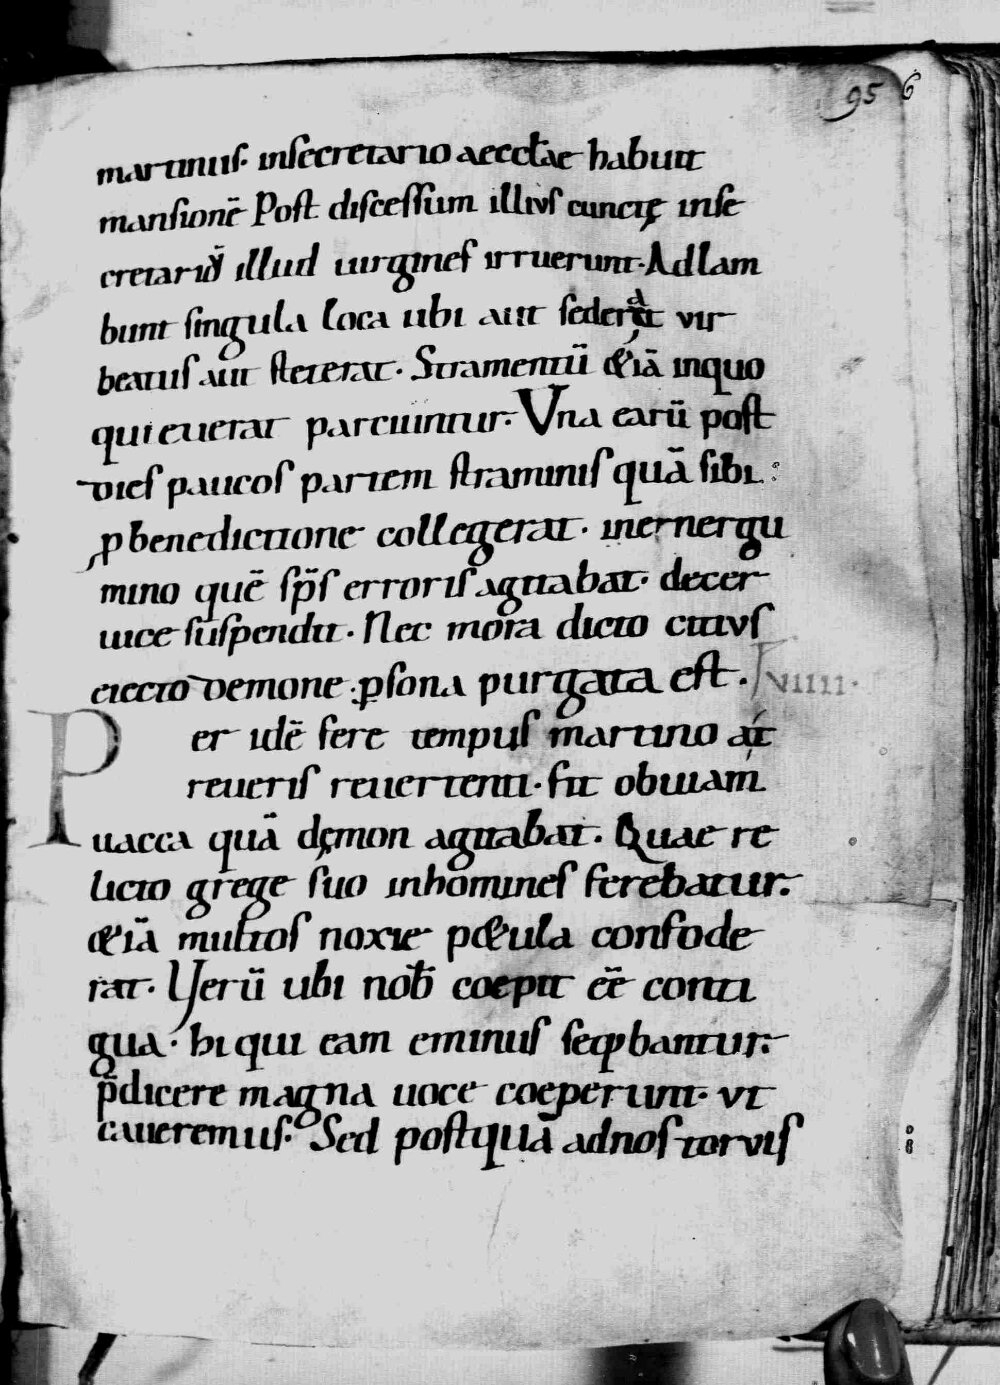 95 6
martinus. insecretario aecclae habuit
mansionē Post discessum illius cunctę inse
cretariū illud uirgines irruerunt. Adlam
bunt singula loca ubi aut sederat vir
beatus aut steterat. Stramentū &iā inquo
quieuerat partiuntur. Una earū post
dies paucos partem straminis quā sibi
p benedictione collegerat. inernergu
mino quē sp̄s erroris agitabat. decer
uice suspendit. Nec mora dicto citius
eiecto demone. psona purgata est. VIIII.
Per idē fere tempus martino at
reueris reuertenti. fit obuiam
uacca quā dęmon agitabat. Quae re
licto grege suo inhomines ferebatur.
&iā multos noxie p&ula confode
rat. Verū ubi nob̄ coepit eē conti
gua. hi qui eam eminus seqbantur.
p̄dicere magna uoce coeperunt. ut
caueremus. Sed postquā adnos torvis